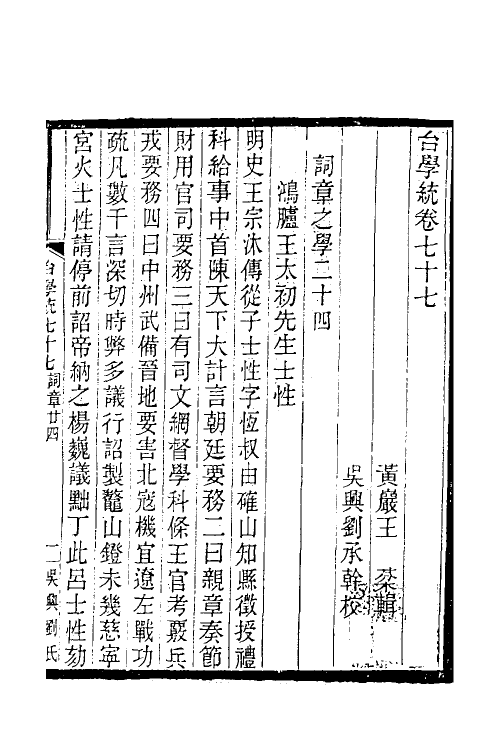 台學統卷七十七
黃巖王　棻輯
吳興劉承幹校
詞章之學二十四
鴻臚王太初先生士性
明史王宗沐傳從子士性字恆叔由確山知縣徵授禮
科給事中首陳天下大計言朝廷要務二曰親章奏節
財用官司要務三曰有司文網督學科條王官考覈兵
戎要務四曰中州武備晉地要害北寇機宜遼左戰功
疏凡數千言深切時弊多議行詔製鼇山鐙未幾慈寧
宮火士性請停前詔帝納之楊巍議黜丁此呂士性劾
台學統七十七詞章廿四
一
吳興劉氏